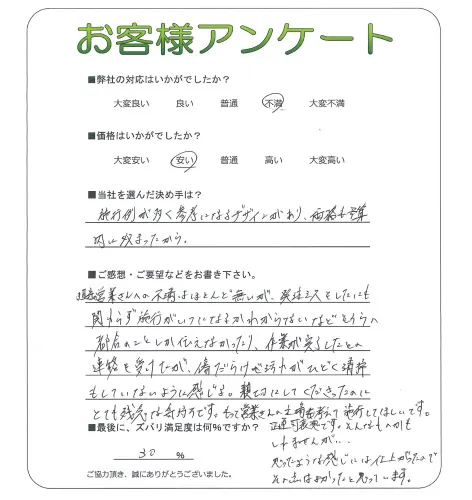 お客様アンケート
■弊社の対応はいかがでしたか？
大変良い 良い 普通 不満 大変不満
■価格はいかがでしたか？
大変安い 安い 普通 高い 大変高い
■当社を選んだ決め手は？
施行例が多く参考になるデザインがあり、価格も予算
内に収まったから。
■ご感想・ご要望などをお書き下さい。
営業さんへの不満はほとんど無いが、発注ミスをしたにも
関わらず施行がいつになるかわからないなどそちらの
都合のことしか伝えなかったり、作業が完了したとの
連絡を受けたが、傷だらけで汚れがひどく清掃
もしていないように感じる。親切にしてくださったのに
とても残念な気持ちです。もって営業さんの立場を考えて施行してほしいです。
■最後に、ズバリ満足度は何%ですか？
正直可哀想です。そんなものかも
しれませんが…
30 %
思ったような感じには仕上がったので
その点はよかったと思っています。
ご協力頂き、誠にありがとうございました。